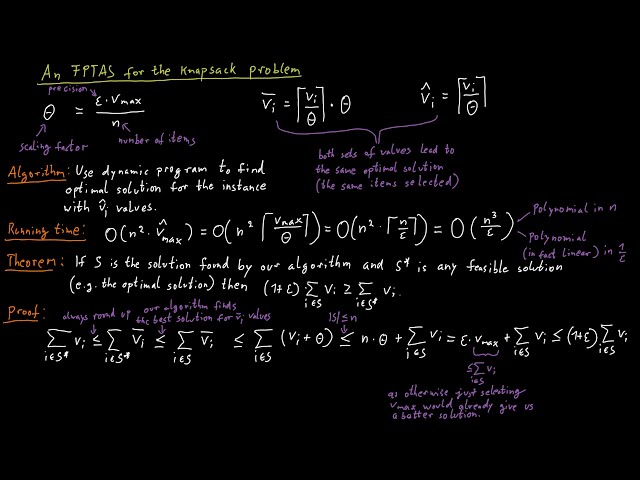 An FPTAS for the Knapsack problem
precision
θ = ε·v_max / n
scaling factor
number of items
v̄_i = ⌈v_i/θ⌉·θ
v̂_i = ⌈v_i/θ⌉
both sets of values lead to
the same optimal solution
(the same items selected)
Algorithm: Use dynamic program to find
optimal solution for the instance
with v̂_i values.
Running time: O(n²·v̂_max) = O(n²⌈v_max/θ⌉) = O(n²·⌈n/ε⌉) = O(n³/ε)
Polynomial in n
Polynomial
(in fact linear) in 1/ε
Theorem: If S is the solution found by our algorithm and S* is any feasible solution
(e.g. the optimal solution) then (1+ε) ∑_{i∈S} v_i ≥ ∑_{i∈S*} v_i.
Proof:
always round up
our algorithm finds
the best solution for v̄_i values
|S| ≤ n
∑_{i∈S*} v_i ≤ ∑_{i∈S*} v̄_i ≤ ∑_{i∈S} v̄_i ≤ ∑_{i∈S} (v_i + θ) ≤ n·θ + ∑_{i∈S} v_i = ε·v_max + ∑_{i∈S} v_i ≤ (1+ε) ∑_{i∈S} v_i
≤ ∑_{i∈S} v_i
as otherwise just selecting
v_max would already give us
a better solution.